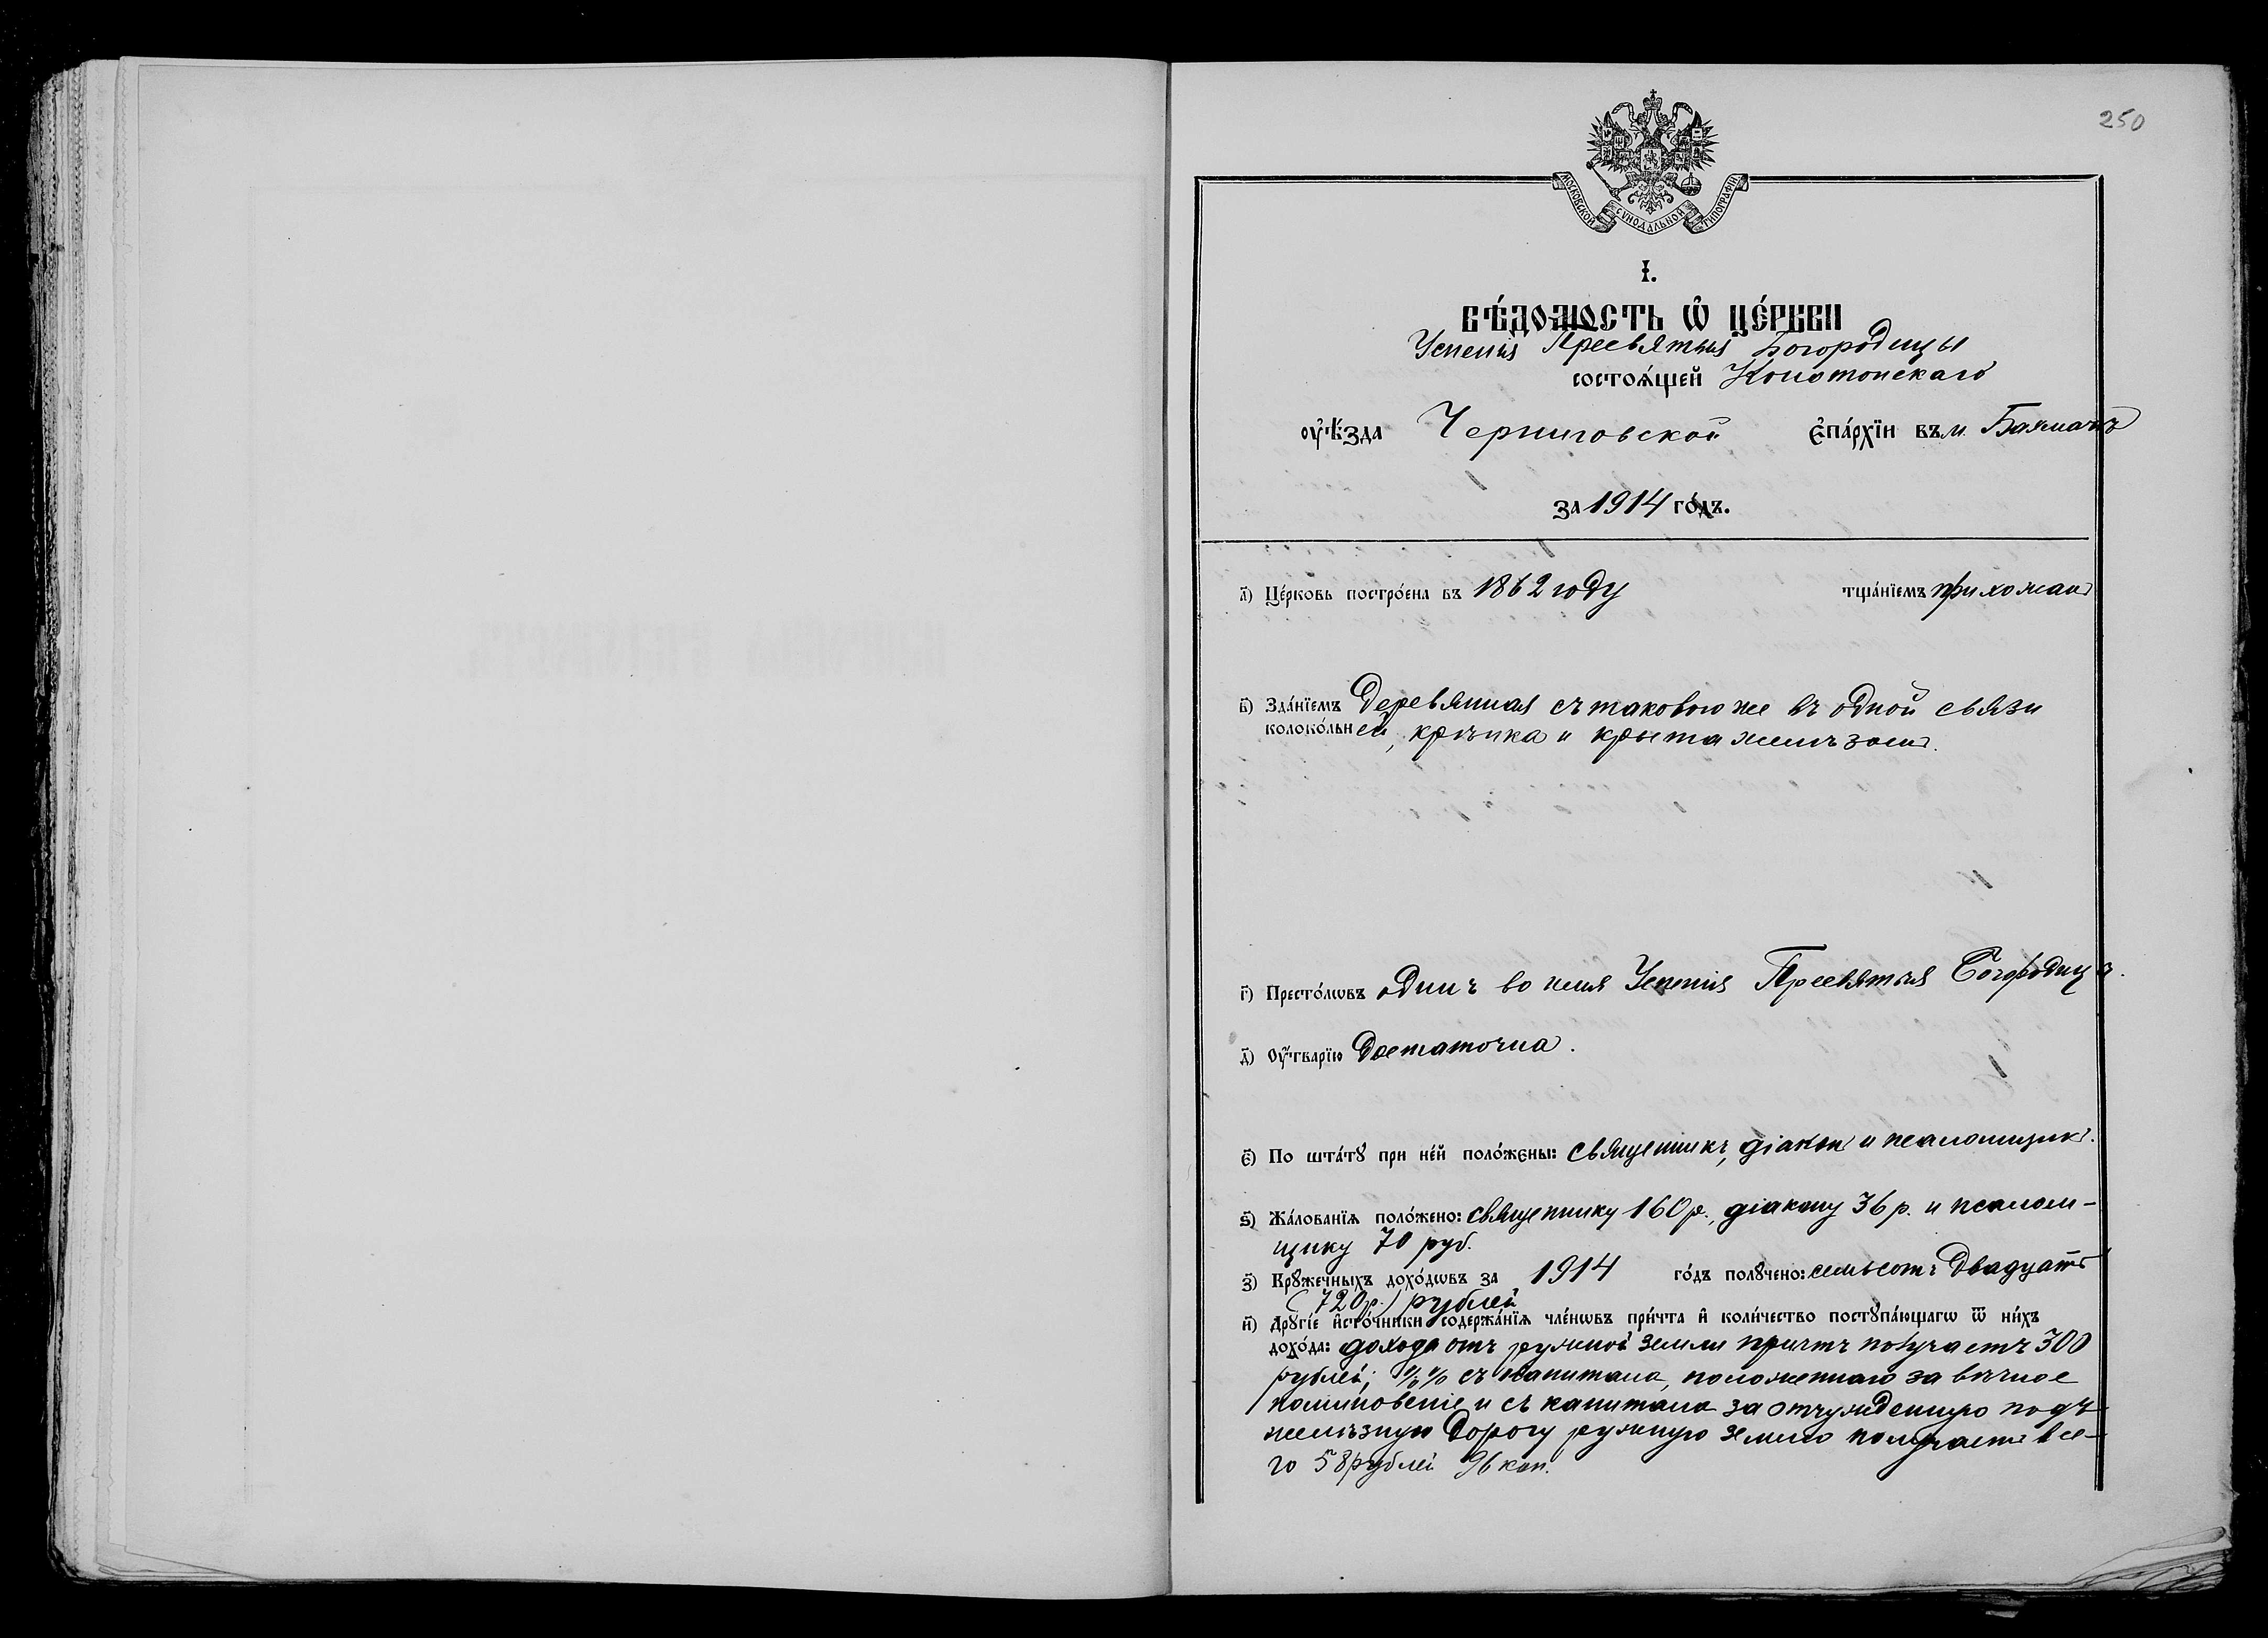 250
МОСКОВСКОЙ СѴНОДАЛЬНОЙ ТИПОГРАФІИ
І.
ВѢ́ДОМОСТЬ Ѽ ЦЕ́РКВИ
Успенія Пресвятыя Богородицы
состоѧ́щей Конотопскаго
ᲂу҆ѣ́зда Черниговской є҆па́рхїи въ м. Бахмачѣ
за 1914 го́дъ.
а҃) Це́рковь постро́ена въ 1862 году тща́нїемъ прихожанъ
в҃) Зда́нїемъ деревянная съ таковою же въ одной связи
колоко́льней, крѣпка и крыта желѣзомъ.
г҃) Престо́лѡвъ одинъ во имя Успенія Пресвятыя Богородицы.
д҃) Оу҆́тварїю достаточна.
є҃) По шта́тꙋ при не́й поло́жены: священникъ, діаконъ и псаломщикъ.
ѕ҃) Жа́лованїѧ поло́жено: священнику 160 р., діакону 36 р. и псалом-
щику 70 руб.
з҃) Крꙋ́жечныхъ дохо́дѡвъ за 1914 го́дъ полꙋ́чено: семьсотъ двадцать
(720 р.) рублей
и҃) Дрꙋгі́е и҆сто́чники содержа́нїѧ чле́нѡвъ при́чта и҆ коли́чество постꙋпа́ющагѡ ѿ ни́хъ
дохо́да: дохода отъ ружной земли причтъ получаетъ 300
рублей; %% съ капитала, положеннаго за вѣчное
поминовеніе и съ капитала за отчужденную подъ
желѣзную дорогу ружную землю получаетъ все-
го 58 рублей 96 коп.